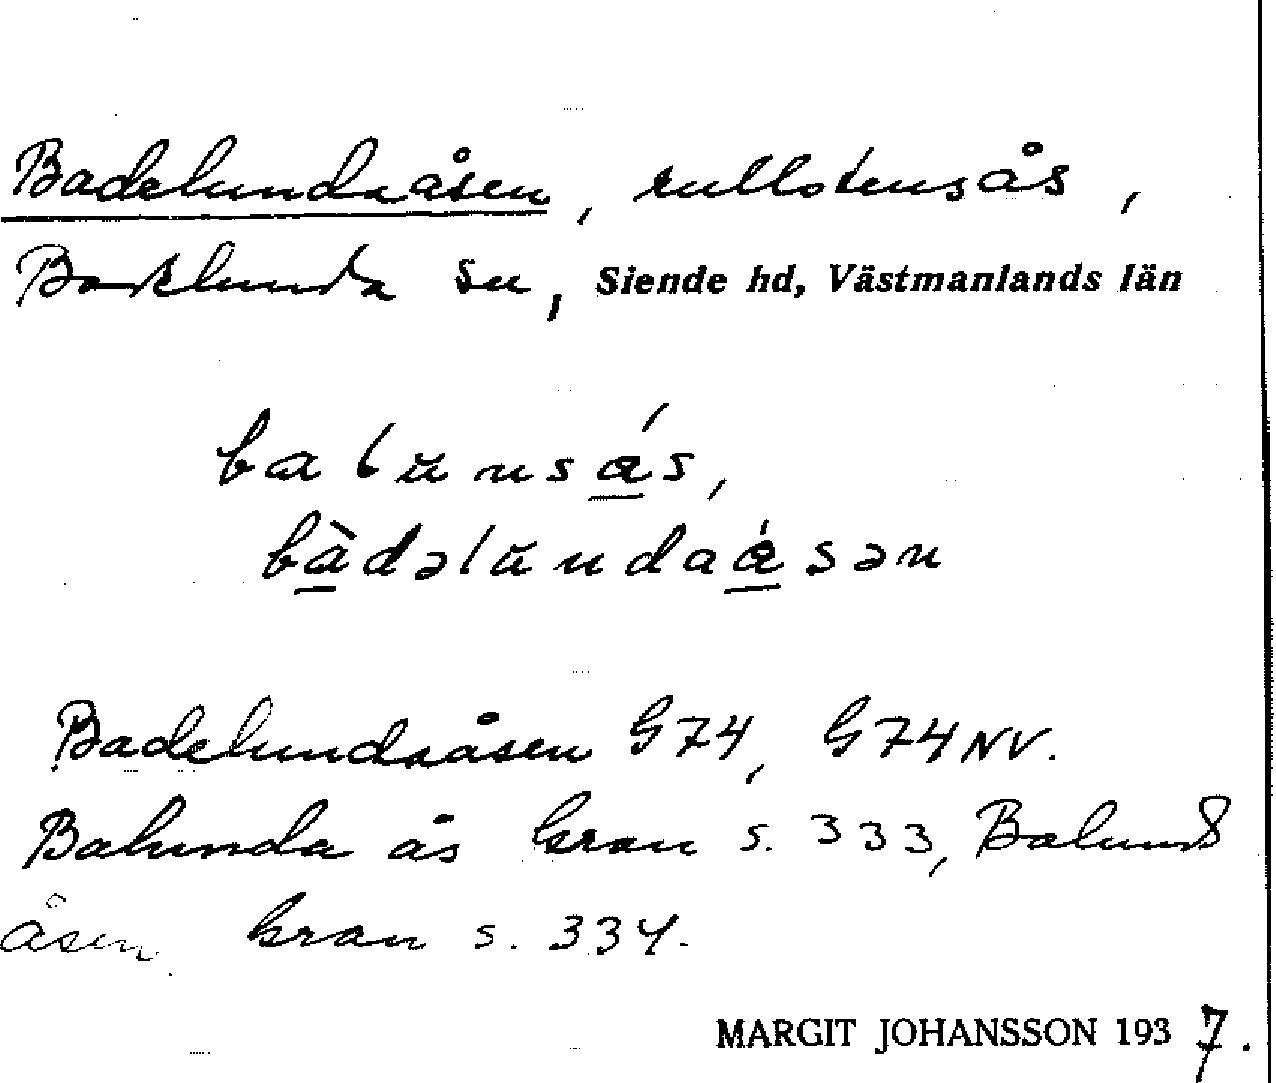 Badelundaåsen, rullstensås,
Badelunda sn, Siende hd, Västmanlands län
balunsás,
bàdəlundaásən
Badelundaåsen G74, G74NV.
Balunda ås Gran s. 333, Balunds
åsen Gran s. 334.
MARGIT JOHANSSON 1937.